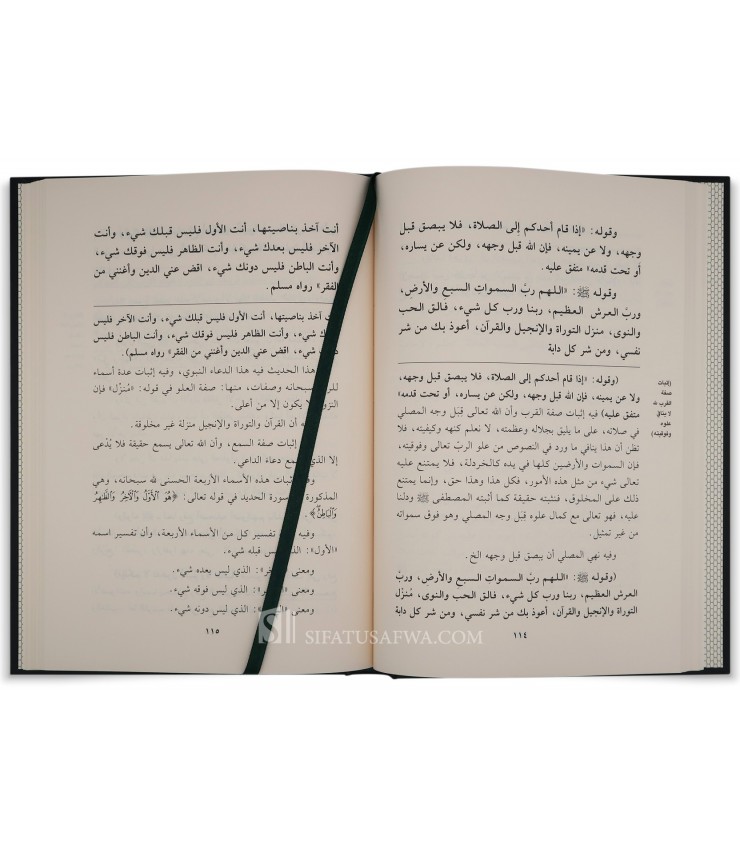 وقوله: «إذا قام أحدكم إلى الصلاة، فلا يبصق قبل
وجهه، ولا عن يمينه، فإن الله قبل وجهه، ولكن عن يساره،
أو تحت قدمه» متفق عليه.
وقوله ﷺ: «اللهم ربّ السموات السبع والأرض،
وربّ العرش العظيم، ربنا ورب كل شيء، فالق الحب
والنوى، منزل التوراة والإنجيل والقرآن، أعوذ بك من شر
نفسي، ومن شر كل دابة
(وقوله: «إذا قام أحدكم إلى الصلاة، فلا يبصق قبل وجهه،
ولا عن يمينه، فإن الله قبل وجهه، ولكن عن يساره، أو تحت قدمه»
متفق عليه) فيه إثبات صفة القرب وأن الله تعالى قبَل وجه المصلي
في صلاته، على ما يليق بجلاله وعظمته، لا نعلم كنهه وكيفيته، فلا
تظن أن هذا ينافي ما ورد في النصوص من علو الربّ تعالى وفوقيته،
فإن السموات والأرضين كلها في يده كالخردلة، فلا يمتنع عليه
تعالى شيء من مثل هذه الأمور، فكل هذا وهذا حق، وإنما يمتنع
ذلك على المخلوق، فنثبته حقيقة كما أثبته المصطفى ﷺ ودلنا
عليه، فهو تعالى مع كمال علوه قبَل وجه المصلي وهو فوق سمواته
من غير تمثيل.
وفيه نهي المصلي أن يبصق قبل وجهه الخ.
(وقوله ﷺ: «اللهم ربّ السموات السبع والأرض، وربّ
العرش العظيم، ربنا ورب كل شيء، فالق الحب والنوى، مُنزل
التوراة والإنجيل والقرآن، أعوذ بك من شر نفسي، ومن شر كل دابة
(إثبات
صفة
القرب لله
لا ينافي
علوه
وفوقيته)
١١٤
أنت آخذ بناصيتها، أنت الأول فليس قبلك شيء، وأنت
الآخر فليس بعدك شيء، وأنت الظاهر فليس فوقك شيء،
وأنت الباطن فليس دونك شيء، اقض عني الدين وأغنني من
الفقر» رواه مسلم.
آخذ بناصيتها، أنت الأول فليس قبلك شيء، وأنت الآخر فليس
بعدك شيء، وأنت الظاهر فليس فوقك شيء، وأنت الباطن فليس
شيء، اقض عني الدين وأغنني من الفقر» رواه مسلم).
هذا الحديث فيه هذا الدعاء النبوي، وفيه إثبات عدة أسماء
سبحانه وصفات، منها: صفة العلو في قوله: «مُنزل» فإن
يكون إلا من أعلى.
أن القرآن والتوراة والإنجيل منزلة غير مخلوقة.
إثبات صفة السمع، وأن الله تعالى يسمع حقيقة فلا يُدْعى
إلا الذي يسمع دعاءَ الداعي.
إثبات هذه الأسماء الأربعة الحسنى لله سبحانه، وهي
المذكورة سورة الحديد في قوله تعالى: ﴿هُوَ ٱلْأَوَّلُ وَٱلْآخِرُ وَٱلظَّٰهِرُ
وَٱلْبَاطِنُ﴾.
وفيه تفسير كل من الأسماء الأربعة، وأن تفسير اسمه
«الأول»: الذي ليس قبله شيء.
ومعنى: الذي ليس بعده شيء.
ومعنى: الذي ليس فوقه شيء.
ومعنى: الذي ليس دونه شيء.
١١٥
SIFATUSAFWA.COM